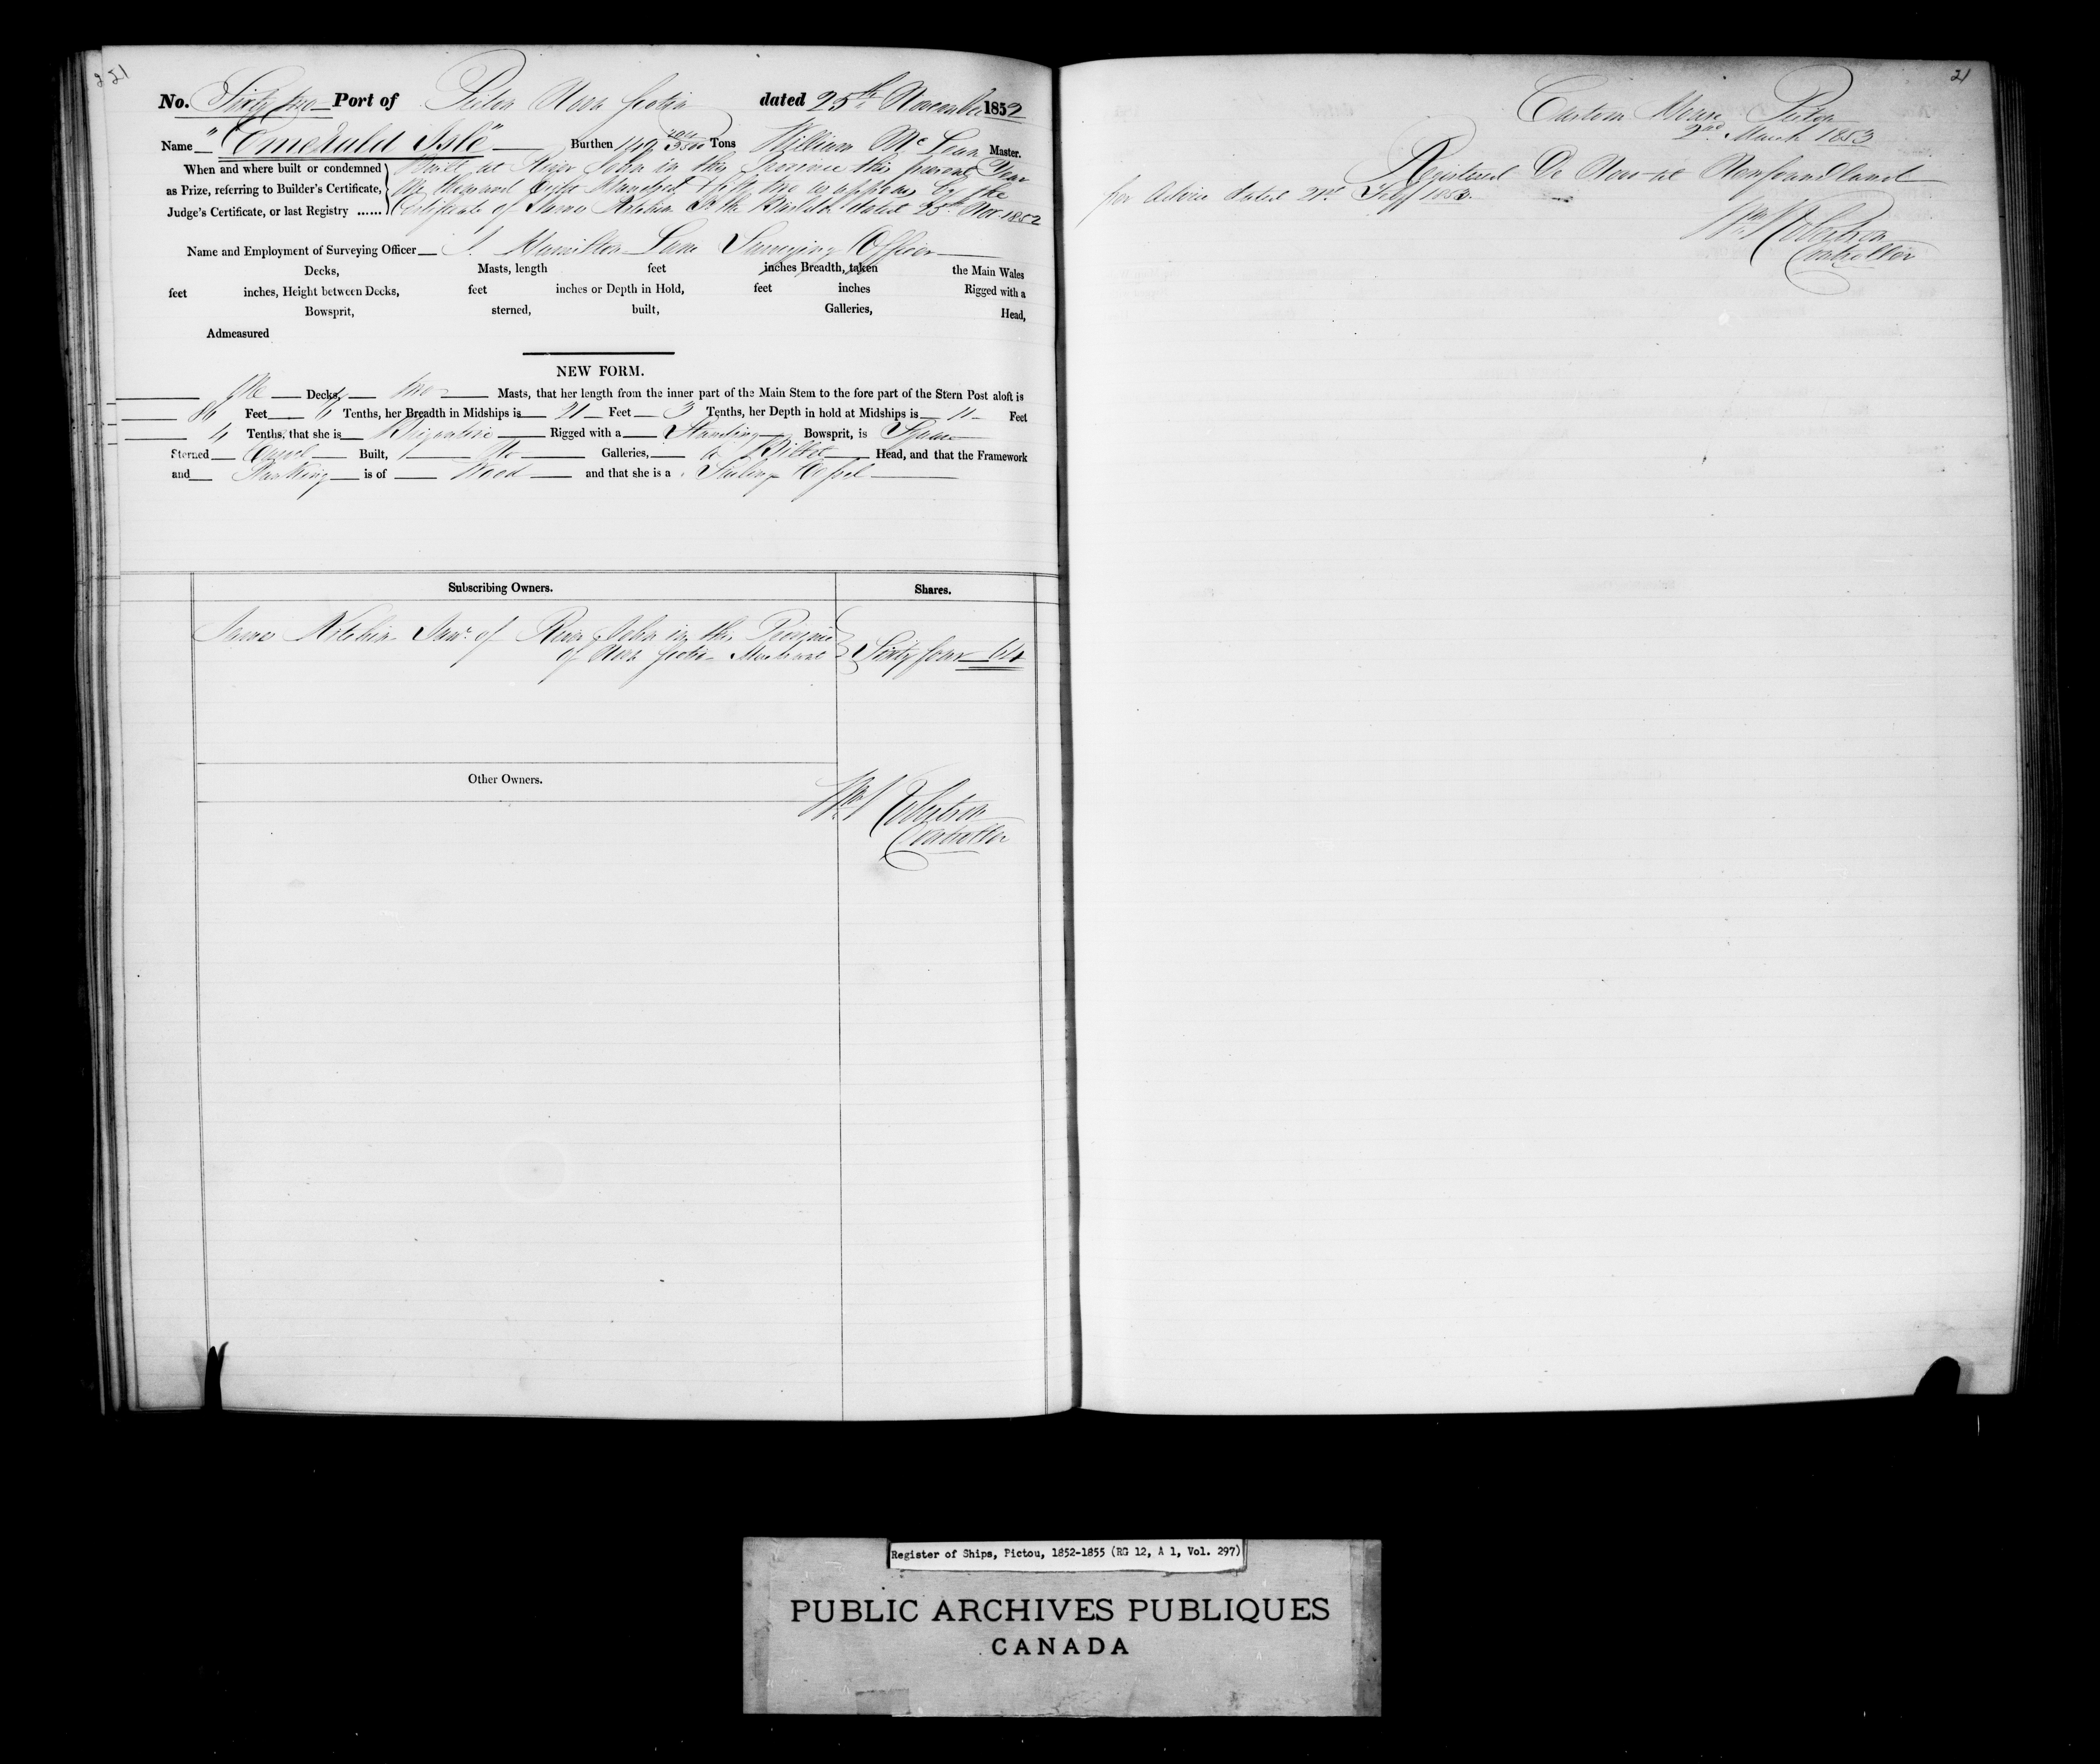 21
No. Thirty two Port of Pictou Nova Scotia dated 25th November 1852
Name "Emerald Isle" Burthen 149 Tons William McLean Master.
When and where built or condemned Built at River John in this Province this present Year
as Prize, referring to Builder's Certificate, One thousand Eight Hundred & fifty two as appears by the
Judge's Certificate, or last Registry ...... Certificate of James Kitchin the Builder dated 25th Nov 1852
Name and Employment of Surveying Officer J. Hamilton Lane Surveying Officer
Decks, Masts, length feet inches Breadth, taken the Main Wales
feet inches, Height between Decks, feet inches or Depth in Hold, feet inches Rigged with a
Bowsprit, sterned, built, Galleries, Head,
Admeasured
NEW FORM.
One Decks, two Masts, that her length from the inner part of the Main Stem to the fore part of the Stern Post aloft is
86 Feet 6 Tenths, her Breadth in Midships is 21 Feet 3 Tenths, her Depth in hold at Midships is 11 Feet
4 Tenths, that she is Brigantine Rigged with a Standing Bowsprit, is Square
Sterned Carvel Built, No Galleries, a Billet Head, and that the Framework
and Planking is of Wood and that she is a Sailing Vessel
Subscribing Owners. Shares.
James Kitchin Junr. of River John in the Province
of Nova Scotia Merchant Sixty four 64
Other Owners.
Wm Robertson
Controller
21
Custom House Pictou
2nd March 1853
Registered De Novo at Newfoundland
per Advice dated 21st Feby 1853.
Wm Robertson
Controller
Register of Ships, Pictou, 1852-1855 (RG 12, A 1, Vol. 297)
PUBLIC ARCHIVES PUBLIQUES
CANADA